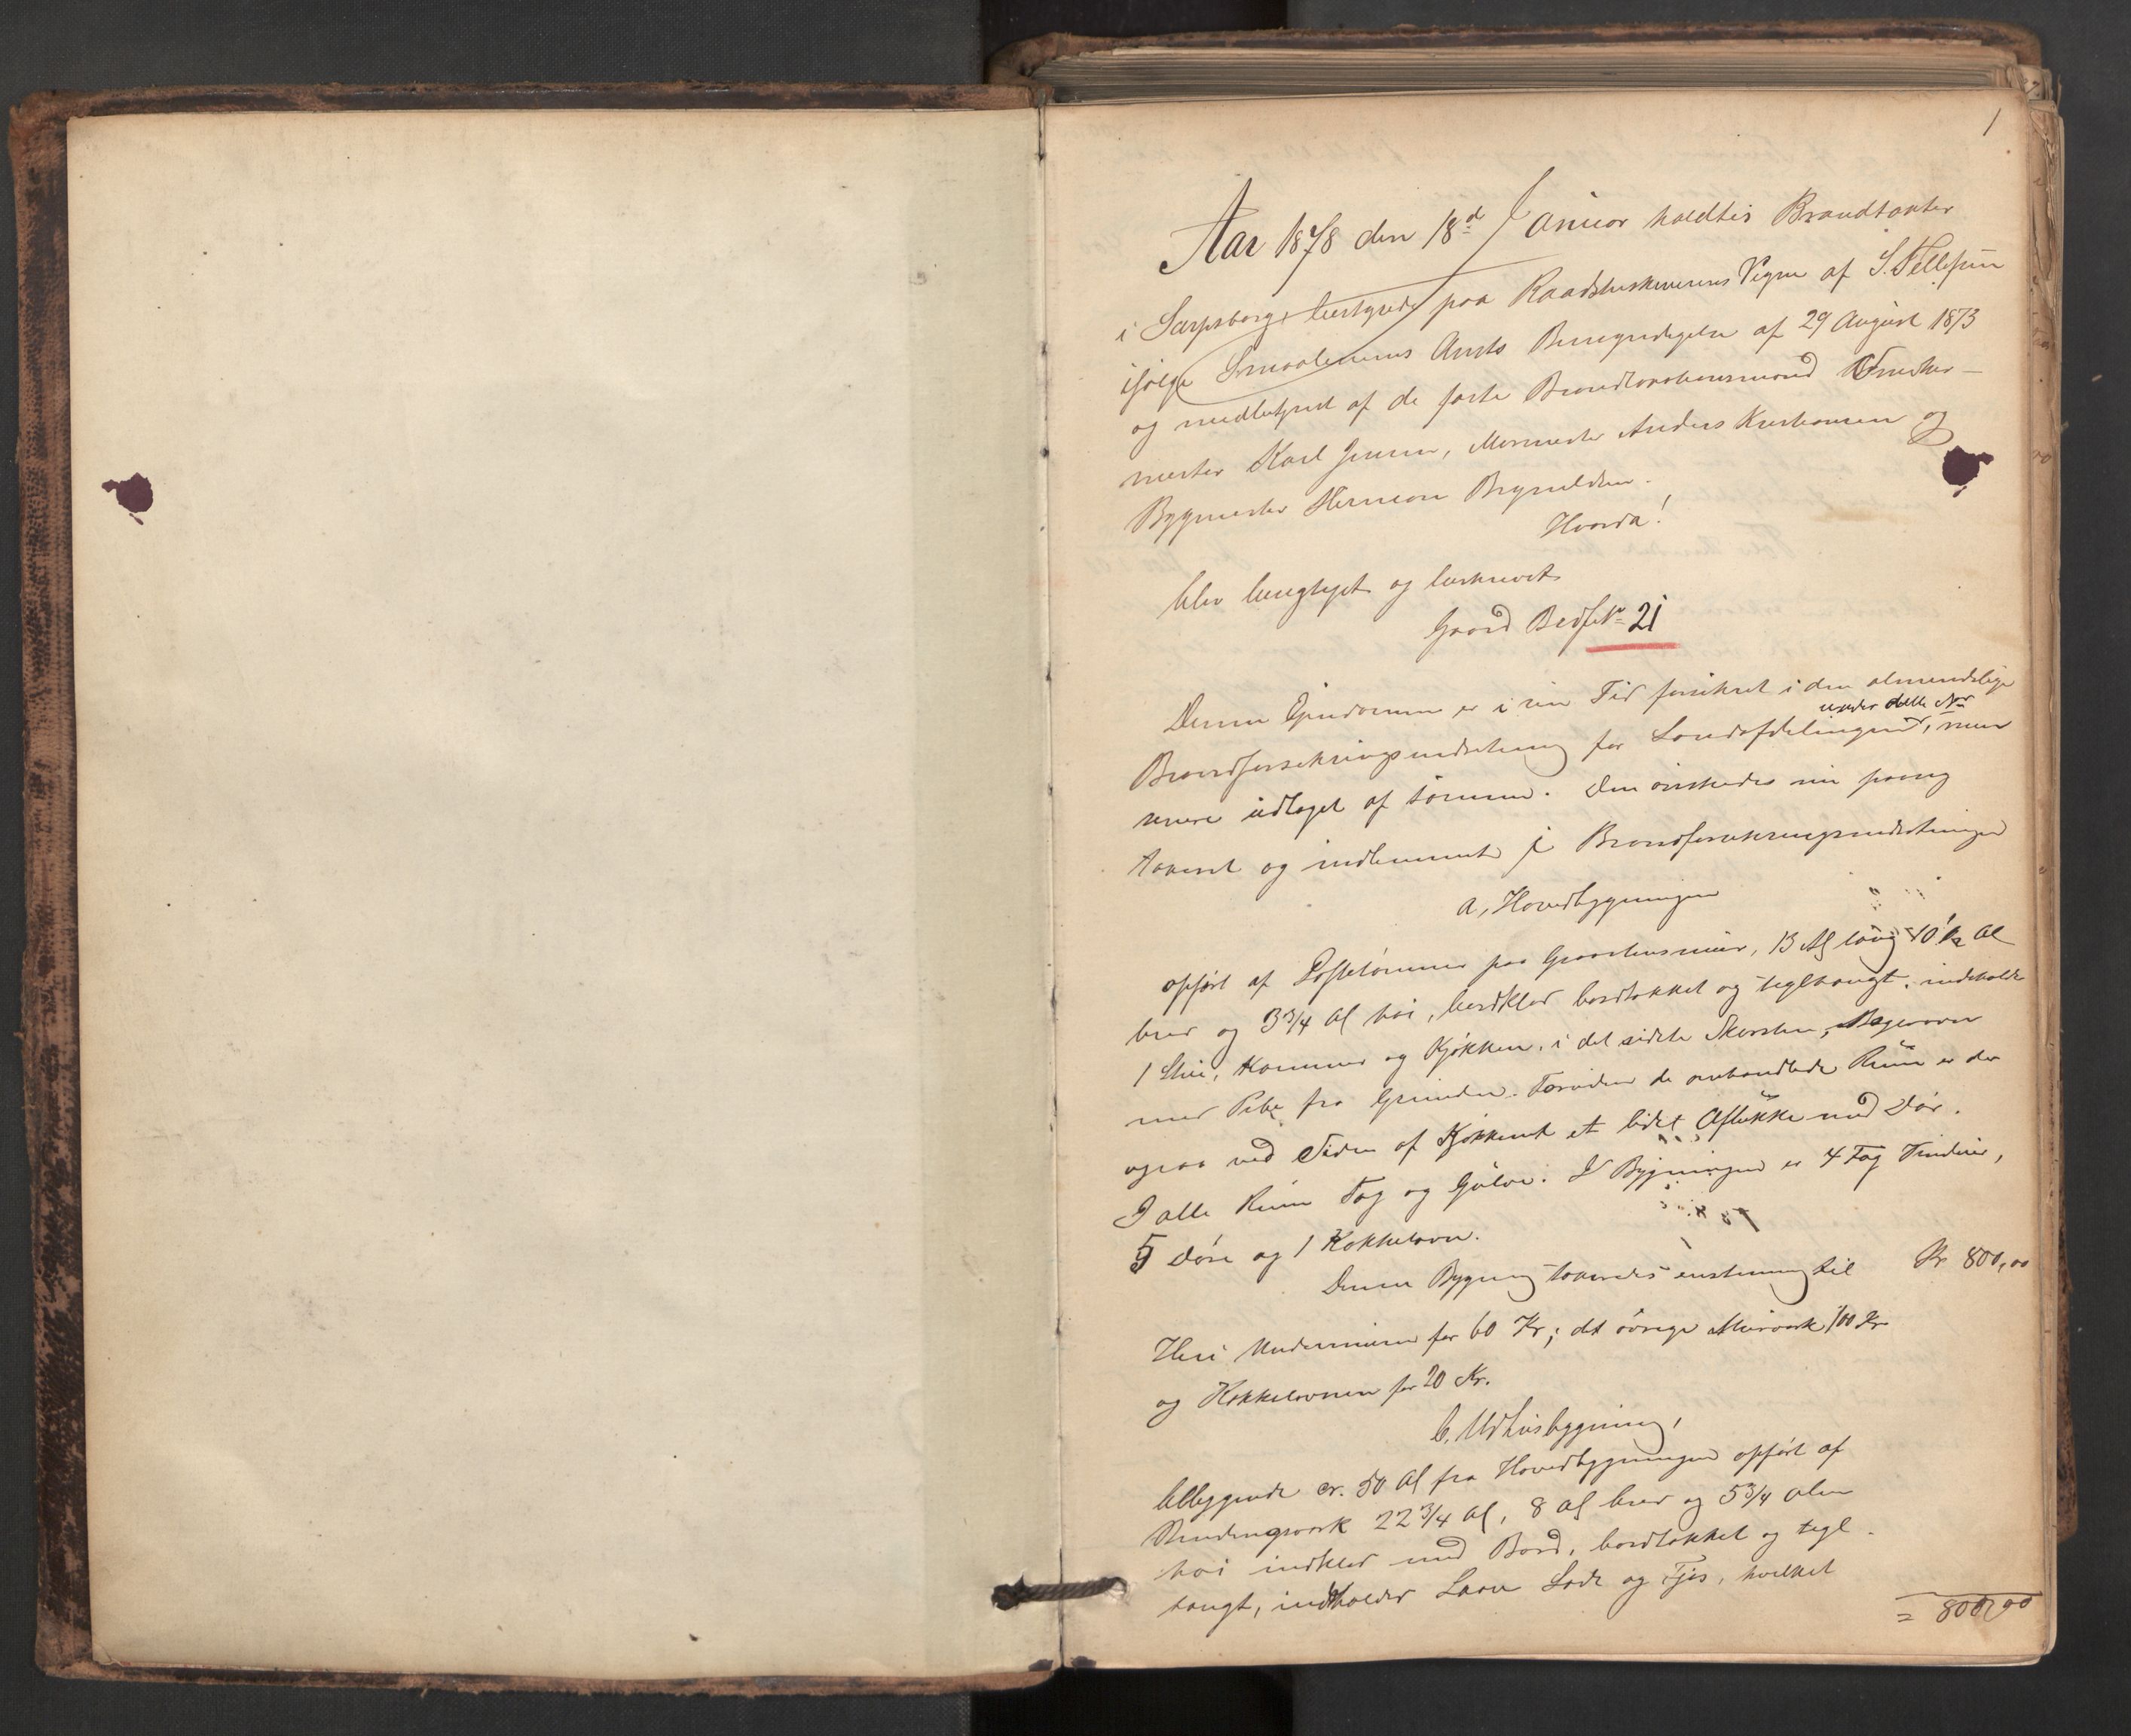 1
Aar 1878 den 18d Januar holdtes Brandtakster
i Sarpsborg, bestyrede paa Raadstueskriverens Vegne af S. Tellefsen
ifølge Smaalenenes Amts Bemyndigelse af 29 August 1873
og medbetjent af de faste Brandtaxationsmænd Snedker-
mester Karl Jensen, Murmester Anders Kristiansen og
Bygmester Herman Brynildsen.
Hvorda!
blev besigtiget og beskrevet
Gaard Bedfts No 21
Denne Ejendomme er i sin Tid forsikret i den almindelige
under dette Nr
Brandforsikringsindretning for Landafdelingen, men
senere udtaget af samme. Den ønskedes nu paany
taxeret og indlemmet i Brandforsikringsindretningen
a, Hovedbygningen
opført af Loftetømmer paa Graastensmur, 13 Al lang 10 1/2 Al
bred og 3 3/4 Al høi, bordklæd bordtækket og teglhængt, indeholder
1 Stue, Kammer og Kjøkken, i det sidste Skorsten, Bagerovn
med Pibe fra Grunden. Foruden de omhandlede Rum er der
ogsaa ved Siden af Kjøkkenet et lidet Aflukke med Dør.
I alle Rum Tag og Gulve. I Bygningen er 4 Fag Vinduer,
5 Døre og 1 Kakkelovn.
Denne Bygning taxeredes enstemmig til Kr 800,00
Heri Undermuren for 60 Kr; det øvrige Murværk 100 Kr
og Kakkelovnen for 20 Kr.
b, Udhusbygning,
beliggende cr. 50 Al fra Hovedbygningen opført af
Bindingsværk 22 3/4 Al, 8 Al bred og 5 3/4 Alen
høi indklæd med Bord, bordtækket og tegl-
hængt, indeholder Laave Lade og Fjøs, hvilket
= 800,00